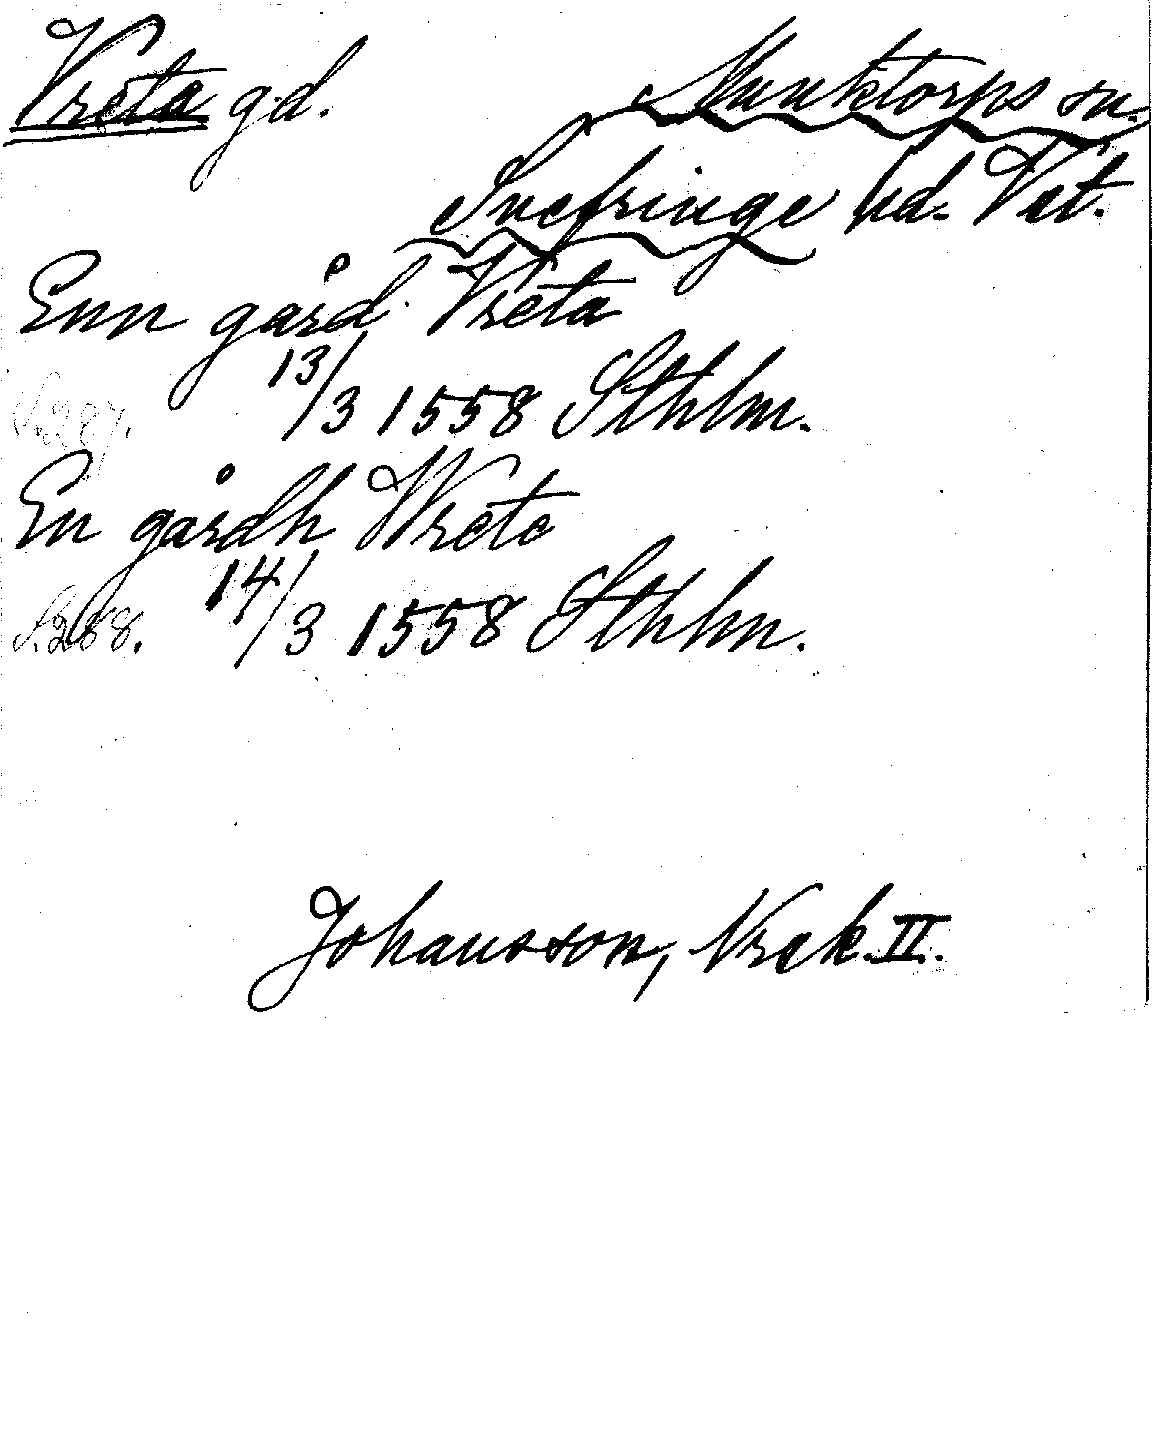 Vreta gd. Munktorps sn.
Snefringe hd. Vst.
Enn gård Vreta
S. 287. 13/3 1558 Sthlm.
En gårdh Wrete
S. 288. 14/3 1558 Sthlm.
Johansson, Vrek. II.